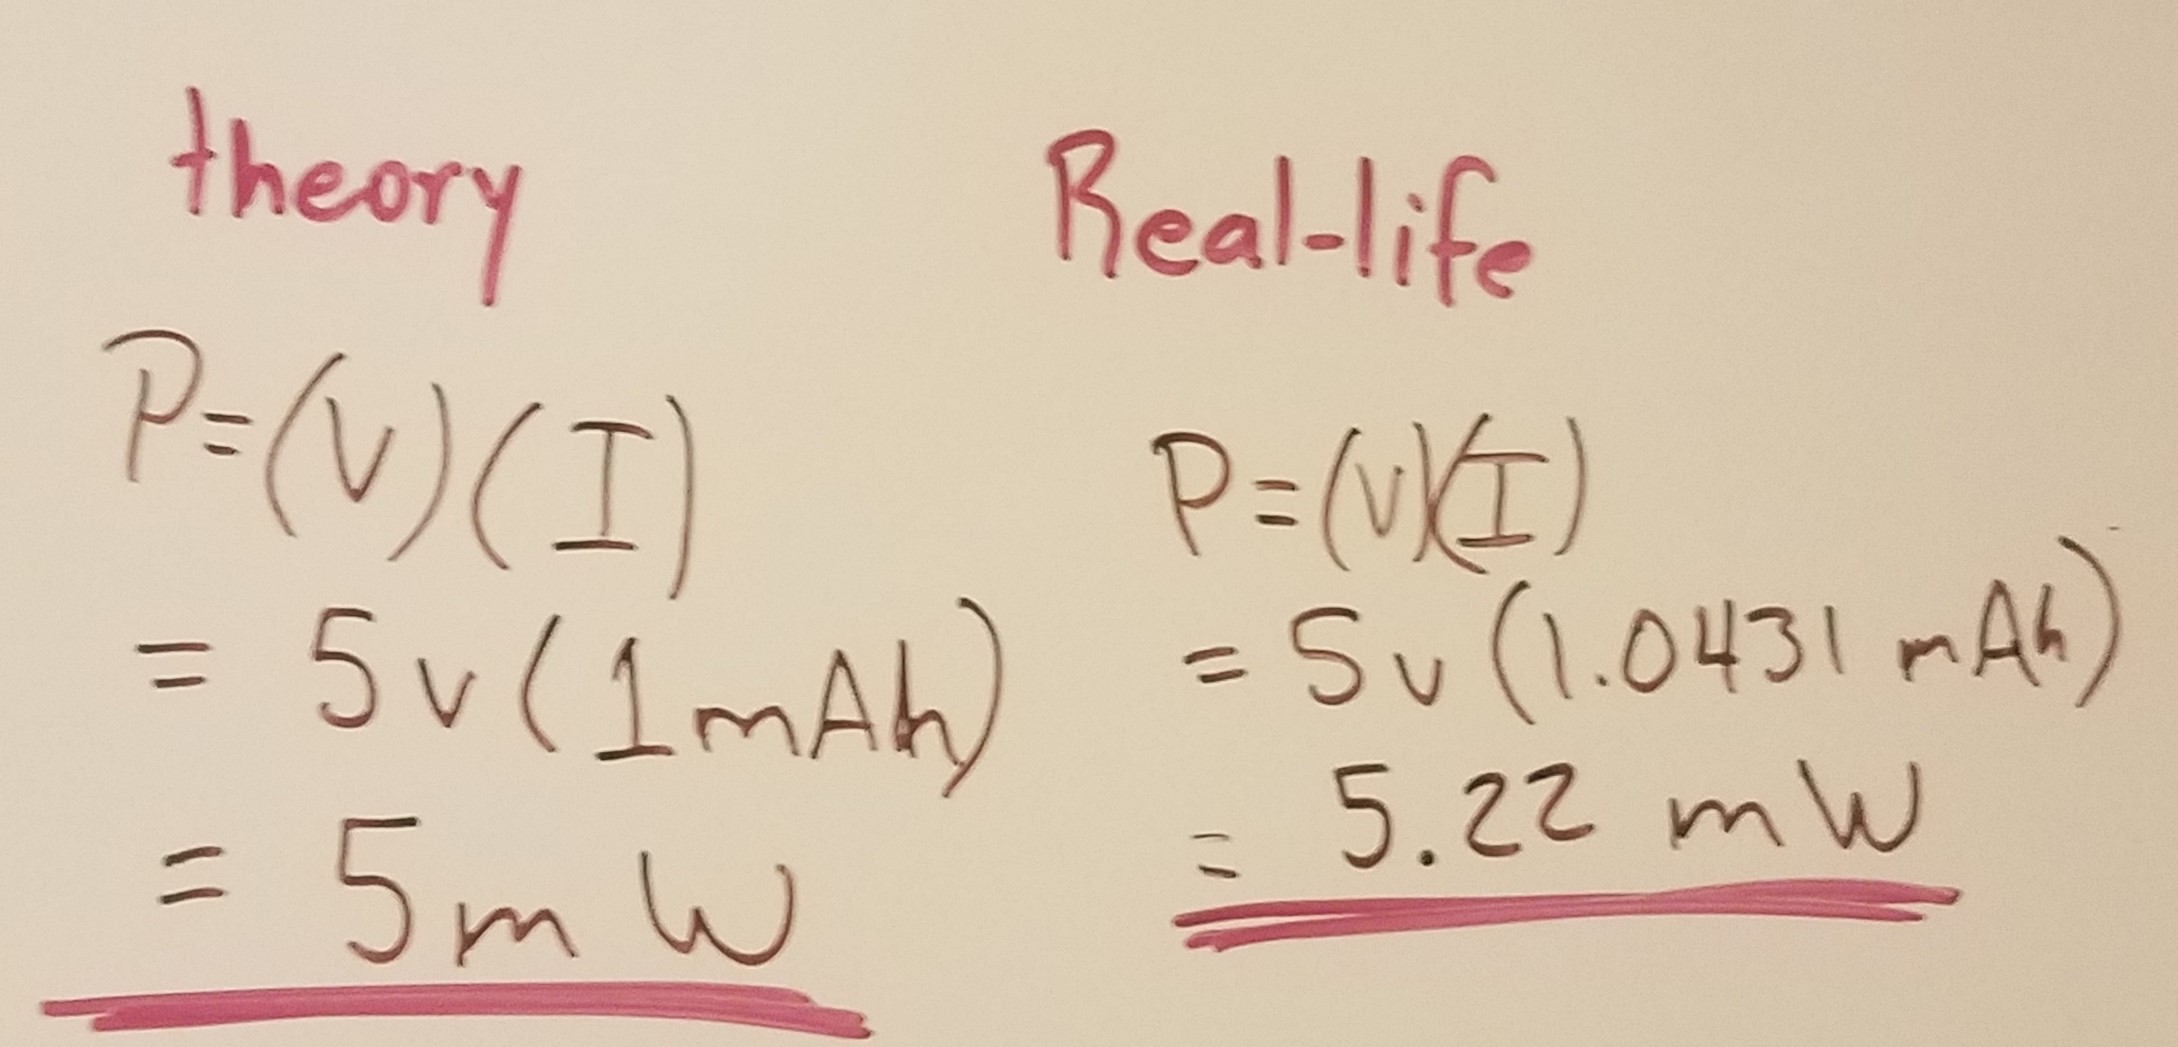 theory
P=(V)(I)
= 5v(1mAh)
= 5mW
Real-life
P=(V)(I)
= 5v(1.0431 mAh)
= 5.22 mW